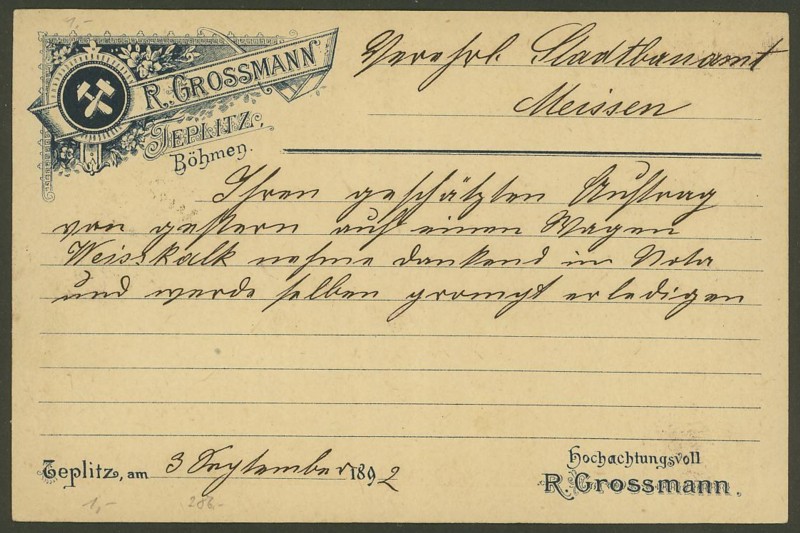 1,-
R. GROSSMANN
TEPLITZ,
Böhmen.
Verehrl. Stadtbauamt
Meissen
Ihren geschätzten Auftrag
von gestern auf einen Wagen
Weisskalk nehme dankend in Nota
und werde selben prompt erledigen
Teplitz, am 3 September 1892
Hochachtungsvoll
R. Grossmann.
1,-
286.-